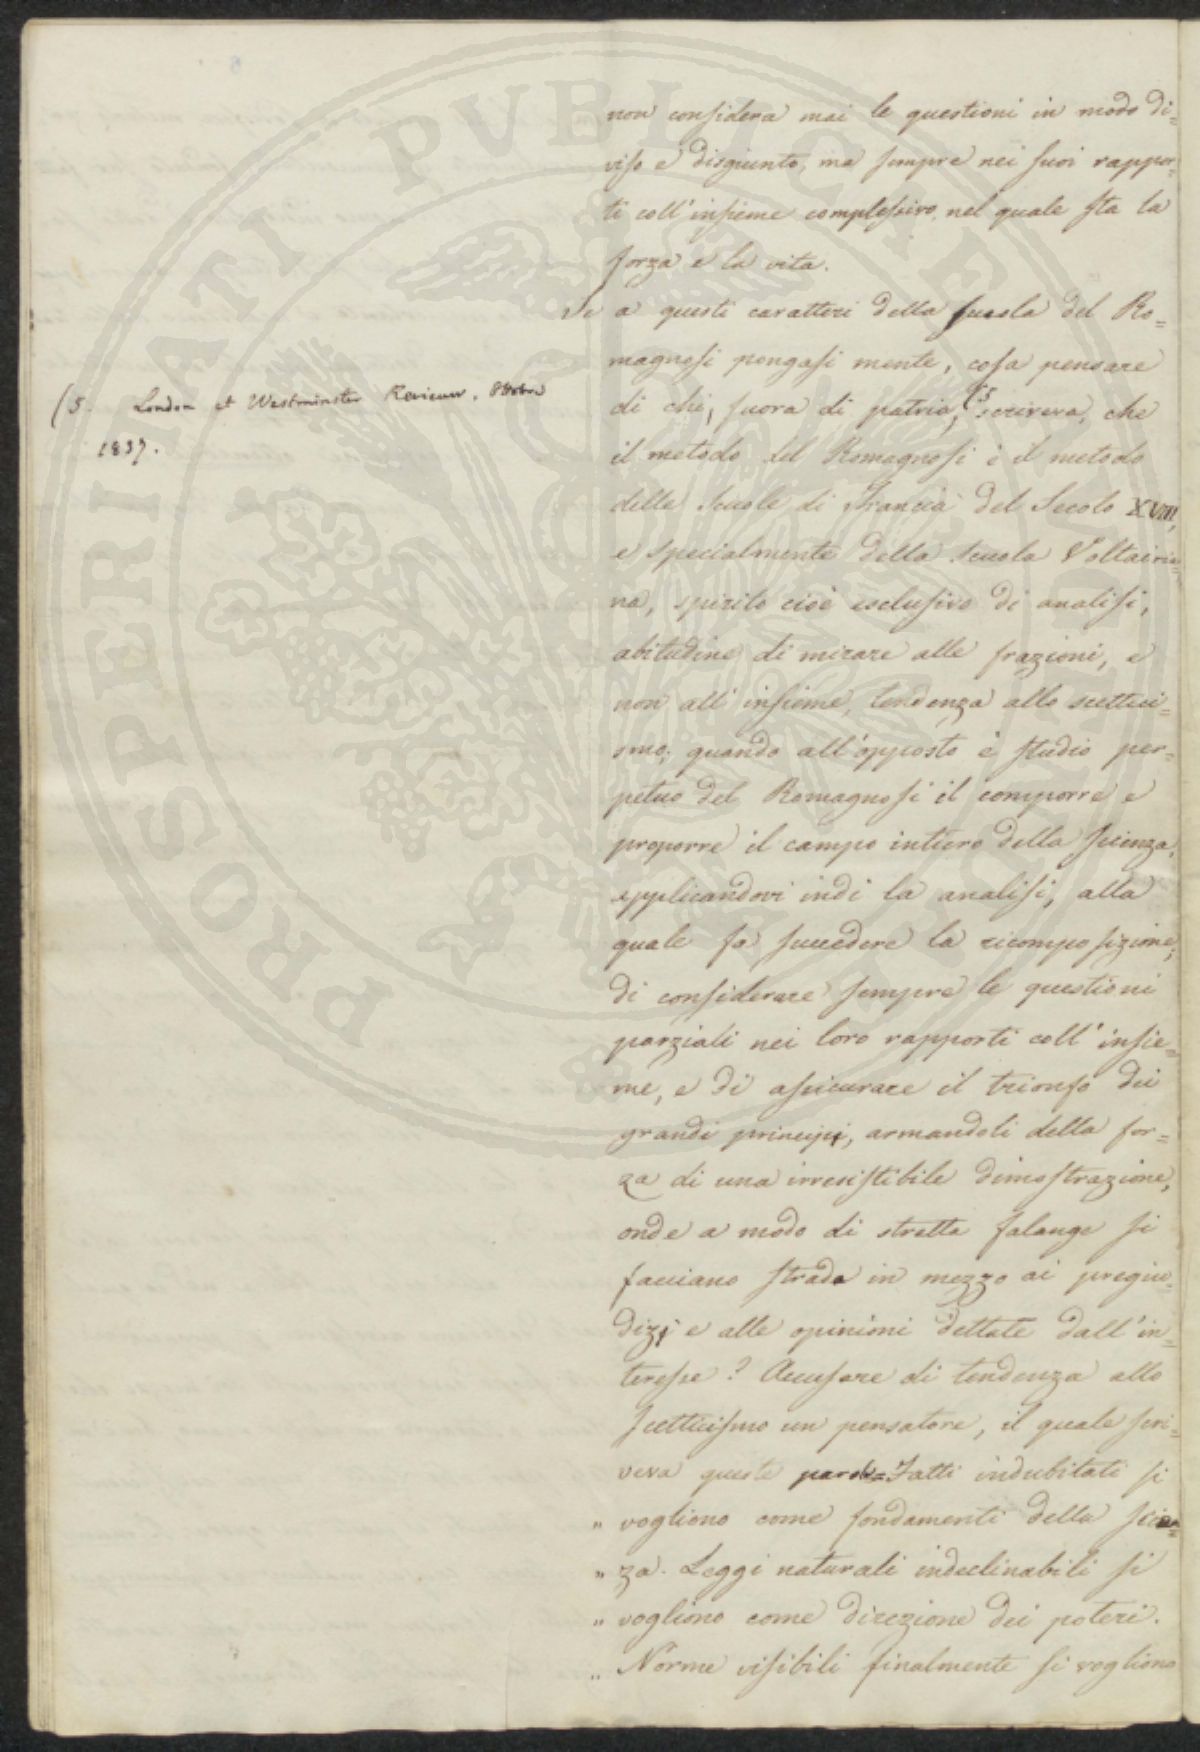 non considera mai le questioni in modo di-
viso e disgiunto, ma sempre nei suoi rappor-
ti coll'insieme complessivo, nel quale sta la
forza e la vita.
Se a questi caratteri della scuola del Ro-
magnosi pongasi mente, cosa pensare
di chi, fuora di patria, (5 scriveva, che
il metodo del Romagnosi è il metodo
delle scuole di Francia del Secolo XVIII,
e specialmente della scuola Voltairia-
na, spirito cioè esclusivo di analisi,
abitudine di mirare alle frazioni, e
non all'insieme, tendenza allo scettici-
smo; quando all'opposto è studio per-
petuo del Romagnosi il comporre e
proporre il campo intiero della scienza,
applicandovi indi la analisi, alla
quale fa succedere la ricomposizione;
di considerare sempre le questioni
parziali nei loro rapporti coll'insie-
me, e di assicurare il trionfo dei
grandi principj, armandoli della for-
za di una irresistibile dimostrazione,
onde a modo di stretta falange si
facciano strada in mezzo ai pregiu-
dizj e alle opinioni dettate dall'in-
teresse? Accusare di tendenza allo
scetticismo un pensatore, il quale scri-
veva queste parole = Fatti indubitati si
„ vogliono come fondamenti della scien-
„ za. Leggi naturali indeclinabili si
„ vogliono come direzione dei poteri.
„ Norme visibili finalmente si vogliono
(5. London et Westminster Review. Ottobre
1837.
PROSPERITATI PVBLICAE